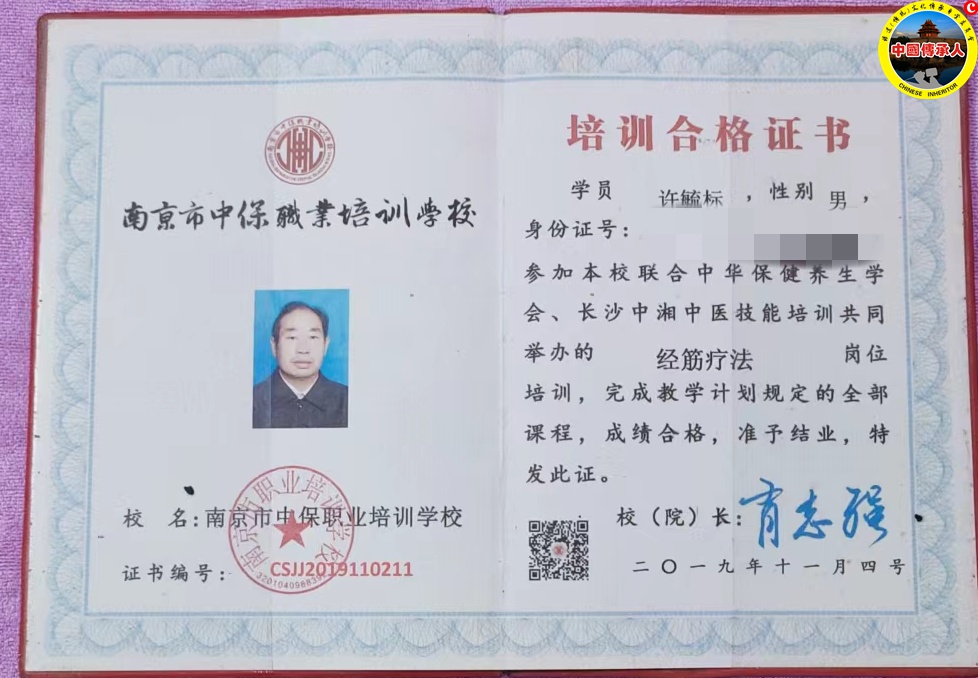 中國傳承人
CHINESE INHERITOR
C
南京市中保職業培训学校
校 名：南京市中保职业培训学校
南京市中保职业培训学校
证书编号： CSJJ2019110211
培训合格证书
学员 许毓标 ，性别 男 ，
身份证号：
参加本校联合中华保健养生学
会、长沙中湘中医技能培训共同
举办的 经筋疗法 岗位
培训，完成教学计划规定的全部
课程，成绩合格，准予结业，特
发此证。
校（院）长：
二〇一九年十一月四号